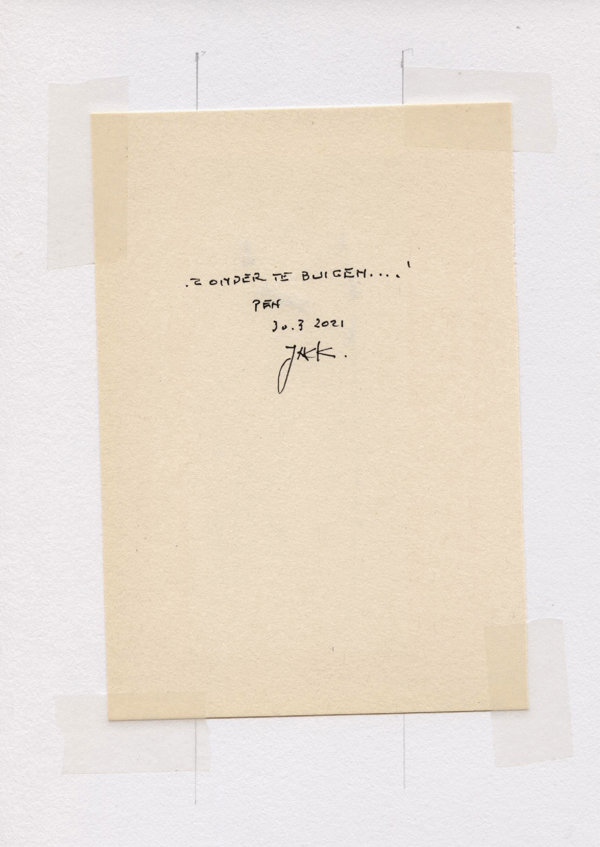 'ZONDER TE BUIGEN....'
PEN
30.3 2021
JAKK.